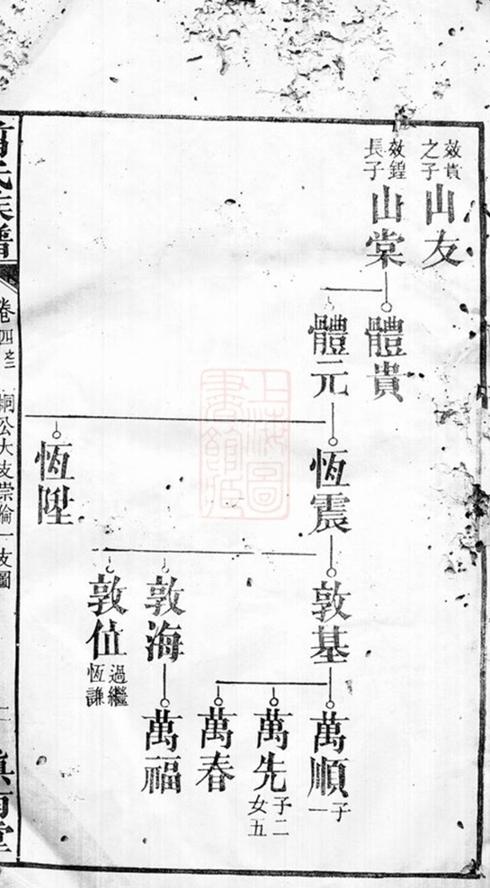 效貴之子
山友
效鍠長子
山棠
體貴
體元
恆震
恆陞
敦基
敦海
敦值
過繼恆謙
萬順
子一
萬先
子二女五
萬春
萬福
氏族譜
卷四之二
公大支崇倫一支圖
上海圖書館藏